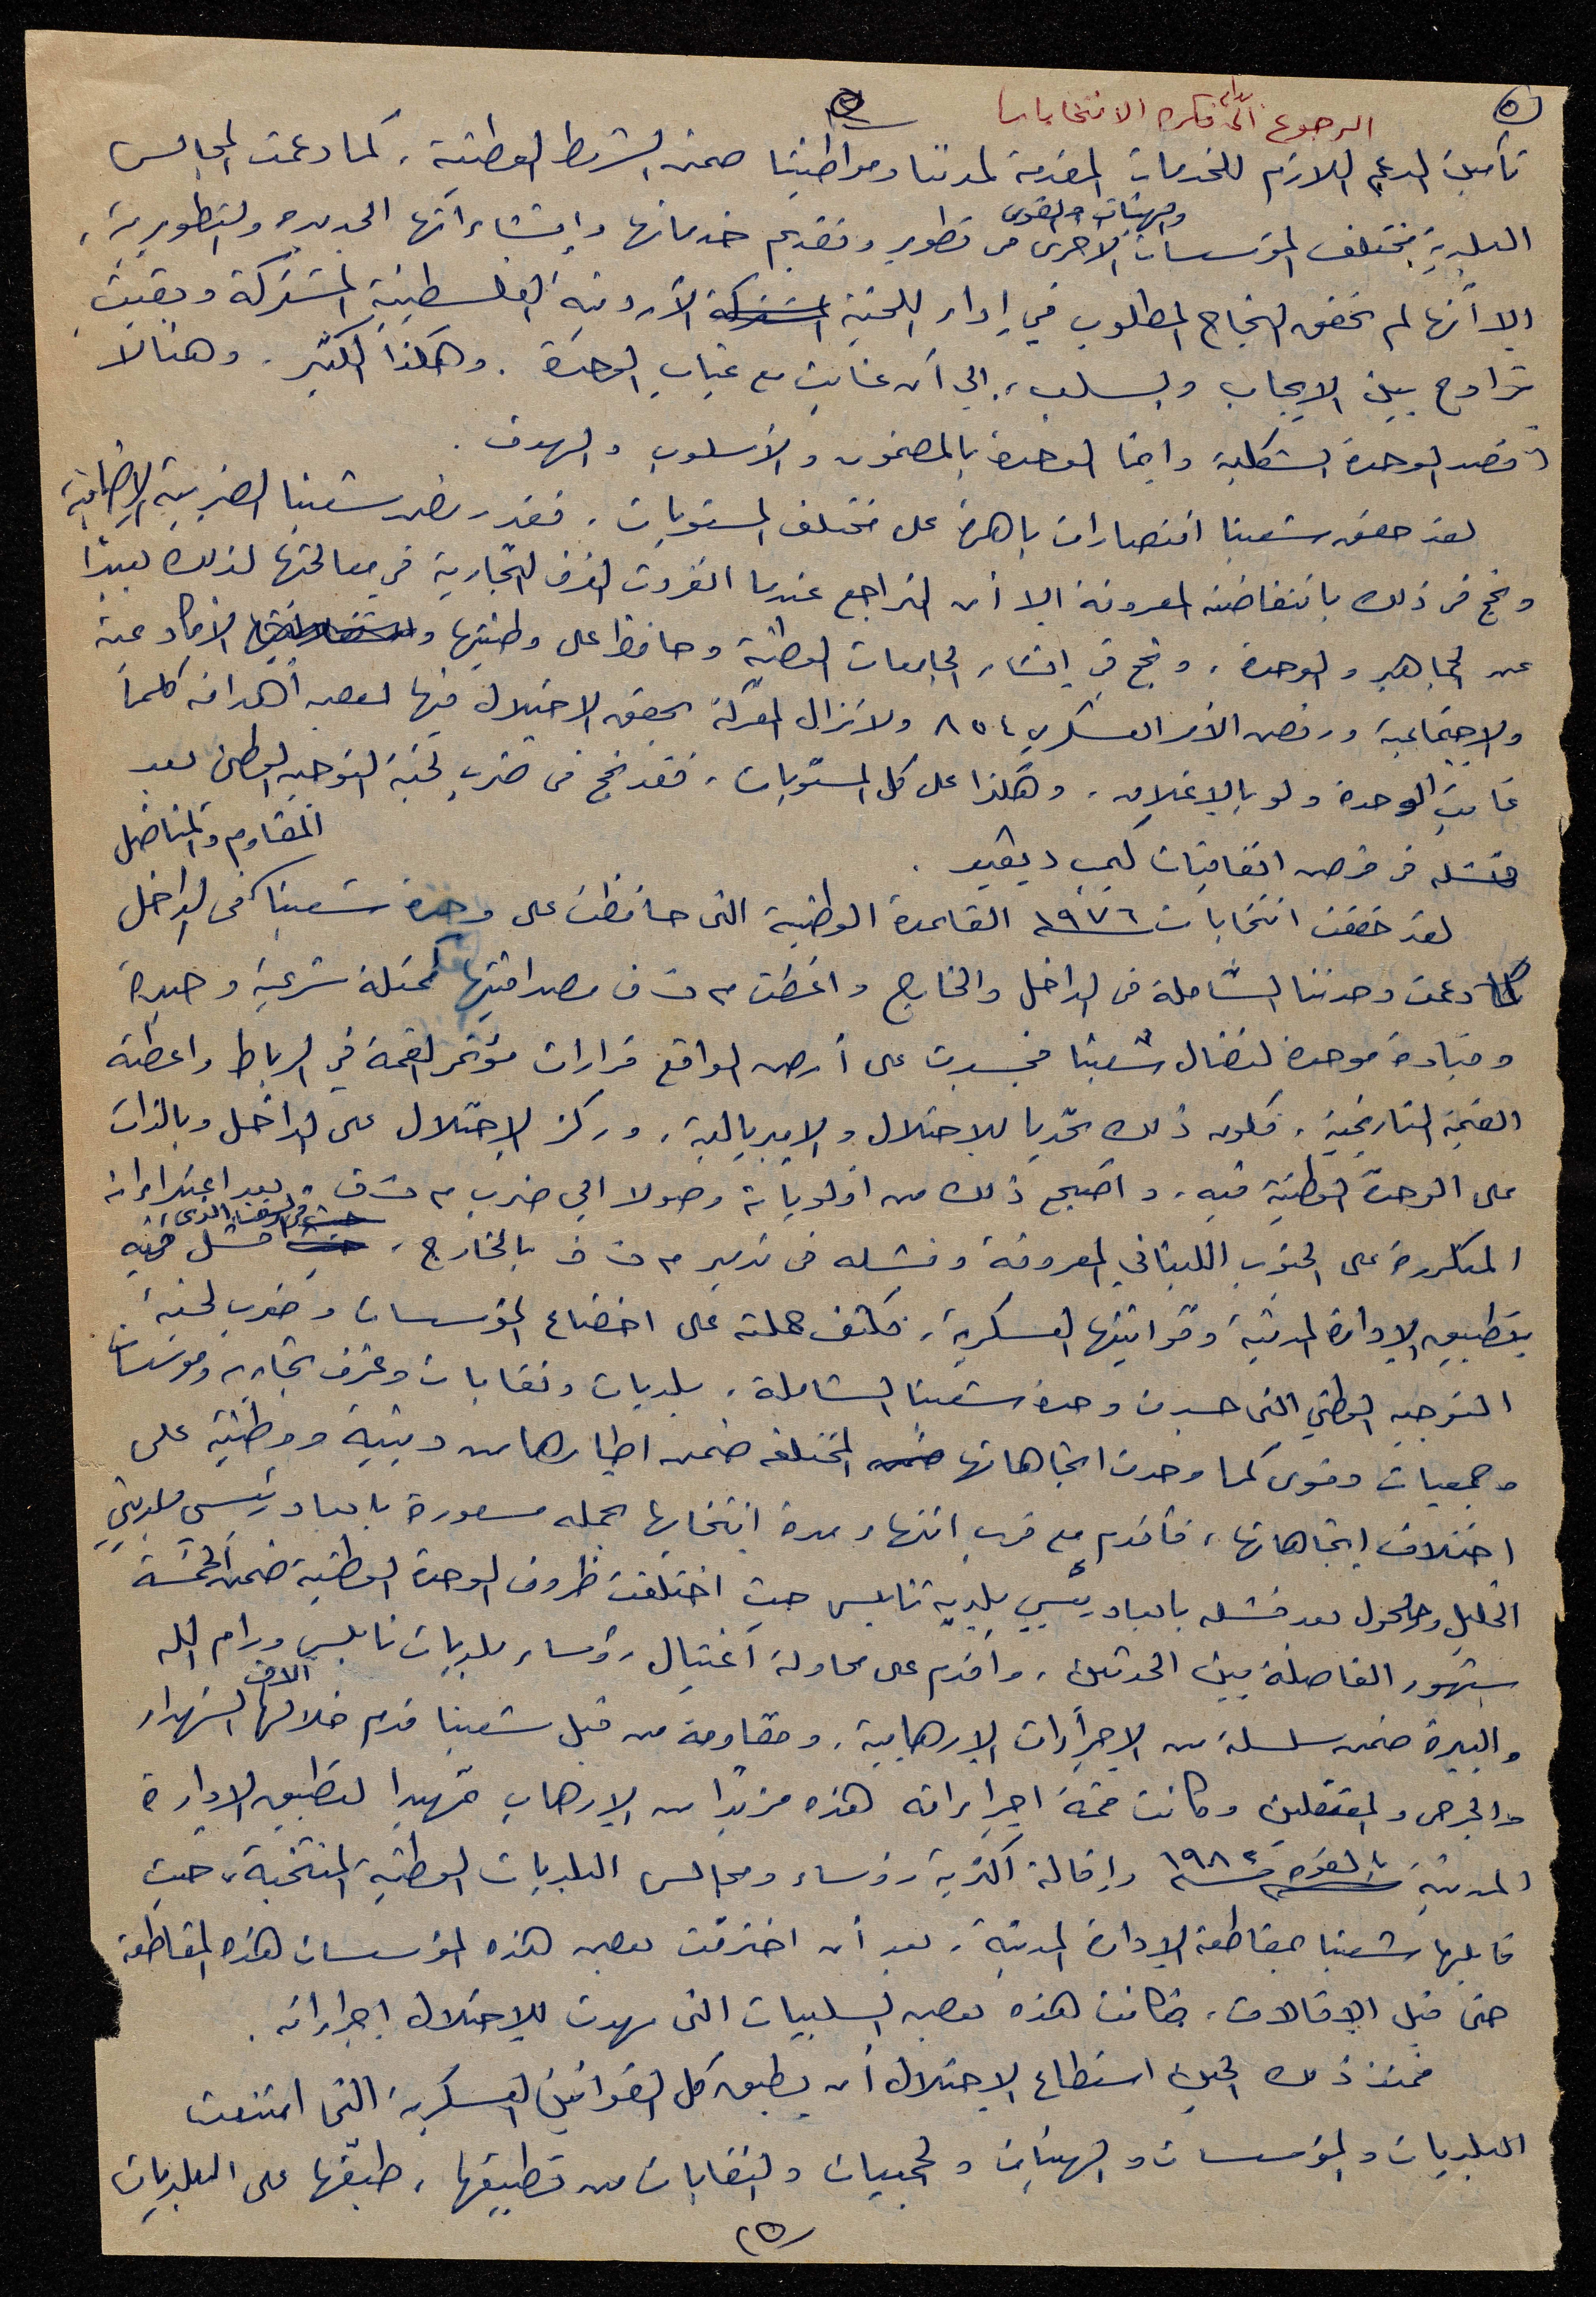 الرجوع الى فكره الانتخابات
٥
تأمين الدعم اللازم للخدمات المقدمة لمدننا ومواطنينا ضمن الشروط الوطنية، كما دعمت المجالس
والهيئات والقوى
البلدية مختلف المؤسسات الاخرى من تطوير وتقديم خدماتها وإنشاءآتها الجديده والتطويرية،
الا أنها لم تحقق النجاح المطلوب في إطار اللجنة المشتركة الأردنية الفلسطينية المشتركة وبقيت
تراوح بين الايجاب والسلب، الى أن عانت مع غياب الوحدة. وهكذا الكثير. وهنا لا
أقصد الوحدة الشكلية وانما الوحدة بالمضمون والأسلوب والهدف.
لقد حقق شعبنا انتصارات باهرة على مختلف المستويات، فقد رفض شعبنا الضريبة الاضافية
ونجح في ذلك بانتفاضته المعروفة الا أن التراجع عندما انفردت الغرف التجارية في معالجتها لذلك بعيدًا
عن الجماهير والوحدة، ونجح في إنشاء الجامعات الوطنية وحافظ على وطنيتها الأكاديمية
والاجتماعية ورفض الأمر العسكري ٨٥٤ ولا تزال المعركة يحقق الاحتلال فيها بعض أهدافه كلما
غابت الوحدة ولو بالاعلان، وهكذا على كل المستويات، فقد نجح في ضرب لجنة التوجيه الوطني بعد
فشله في فرض اتفاقيات كيمب ديفيد.
المقاوم والمناضل
لقد حققت انتخابات ١٩٧٦ القاعدة الوطنية التى حافظت على وحدة شعبنا في الداخل
كما دعمت وحدتنا الشاملة في الداخل والخارج واعطت م ت ف مصداقيتها كممثلة شرعية وحيدة
وقيادة موحدة لنضال شعبنا فجسدت على أرض الواقع قرارات مؤتمر القمة في الرباط واعطته
القيمة التاريخية، فكان ذلك تحديا للاحتلال والامبريالية، وركز الاحتلال على الداخل وبالذات
على الوحدة الوطنية فيه، وأصبح ذلك من أولوياته وصولا الى ضرب م ت ف بعد اعتداءاته
المتكررة على الجنوب اللبناني المعروفة وفشله في تدمير م ت ف بالخارج، فشل فيه
في الوقت الذى
بتطبيق الإدارة المدنية وقوانينها العسكرية، فكثف حملته على اخضاع المؤسسات وضرب لجنة
التوجيه الوطني التى جسدت وحدة شعبنا الشاملة، بلديات ونقابات وغرف تجاريه ومؤسسات
وجمعيات وقوى كما وحدت اتجاهاتها المختلفه ضمن اطارها من دينية ووطنية على
اختلاف اتجاهاتها، فأقدم مع قرب انتهاء مدة انتخابها بحمله مسعورة بابعاد رئيسي بلديتي
الخليل وحلحول بعد فشله بابعاد رئيس بلدية نابلس حيث اختلفت ظروف الوحدة الوطنية ضمن الخمسة
شهور الفاصلة بين الحدثين، وأقدم على محاولة اغتيال رؤساء بلديات نابلس ورام الله
والبيرة ضمن سلسلة من الإجراءات الإرهابية، ومقاومة من قبل شعبنا قدم خلالها آلاف الشهداء
والجرحى والمعتقلين وكانت قمة اجراءاته هذه مزيدًا من الإرهاب تمهيدا لتطبيق الإدارة
المدنية بالقوه ١٩٨٢ وإقالة أكثرية رؤساء ومجالس البلديات الوطنية المنتخبة، حيث
قابلها شعبنا بمقاطعة الإدارة المدنية، بعد أن اخترقت بعض هذه المؤسسات هذه المقاطعة
حتى قبل الإقالات، فكانت هذه بعض السلبيات التى مهدت للاحتلال إجراءاته.
فمنذ ذلك الحين استطاع الاحتلال أن يطبق كل القوانين العسكرية التى امتنعت
البلديات والمؤسسات والهيئات والجمعيات والنقابات من تطبيقها، طبقها على البلديات